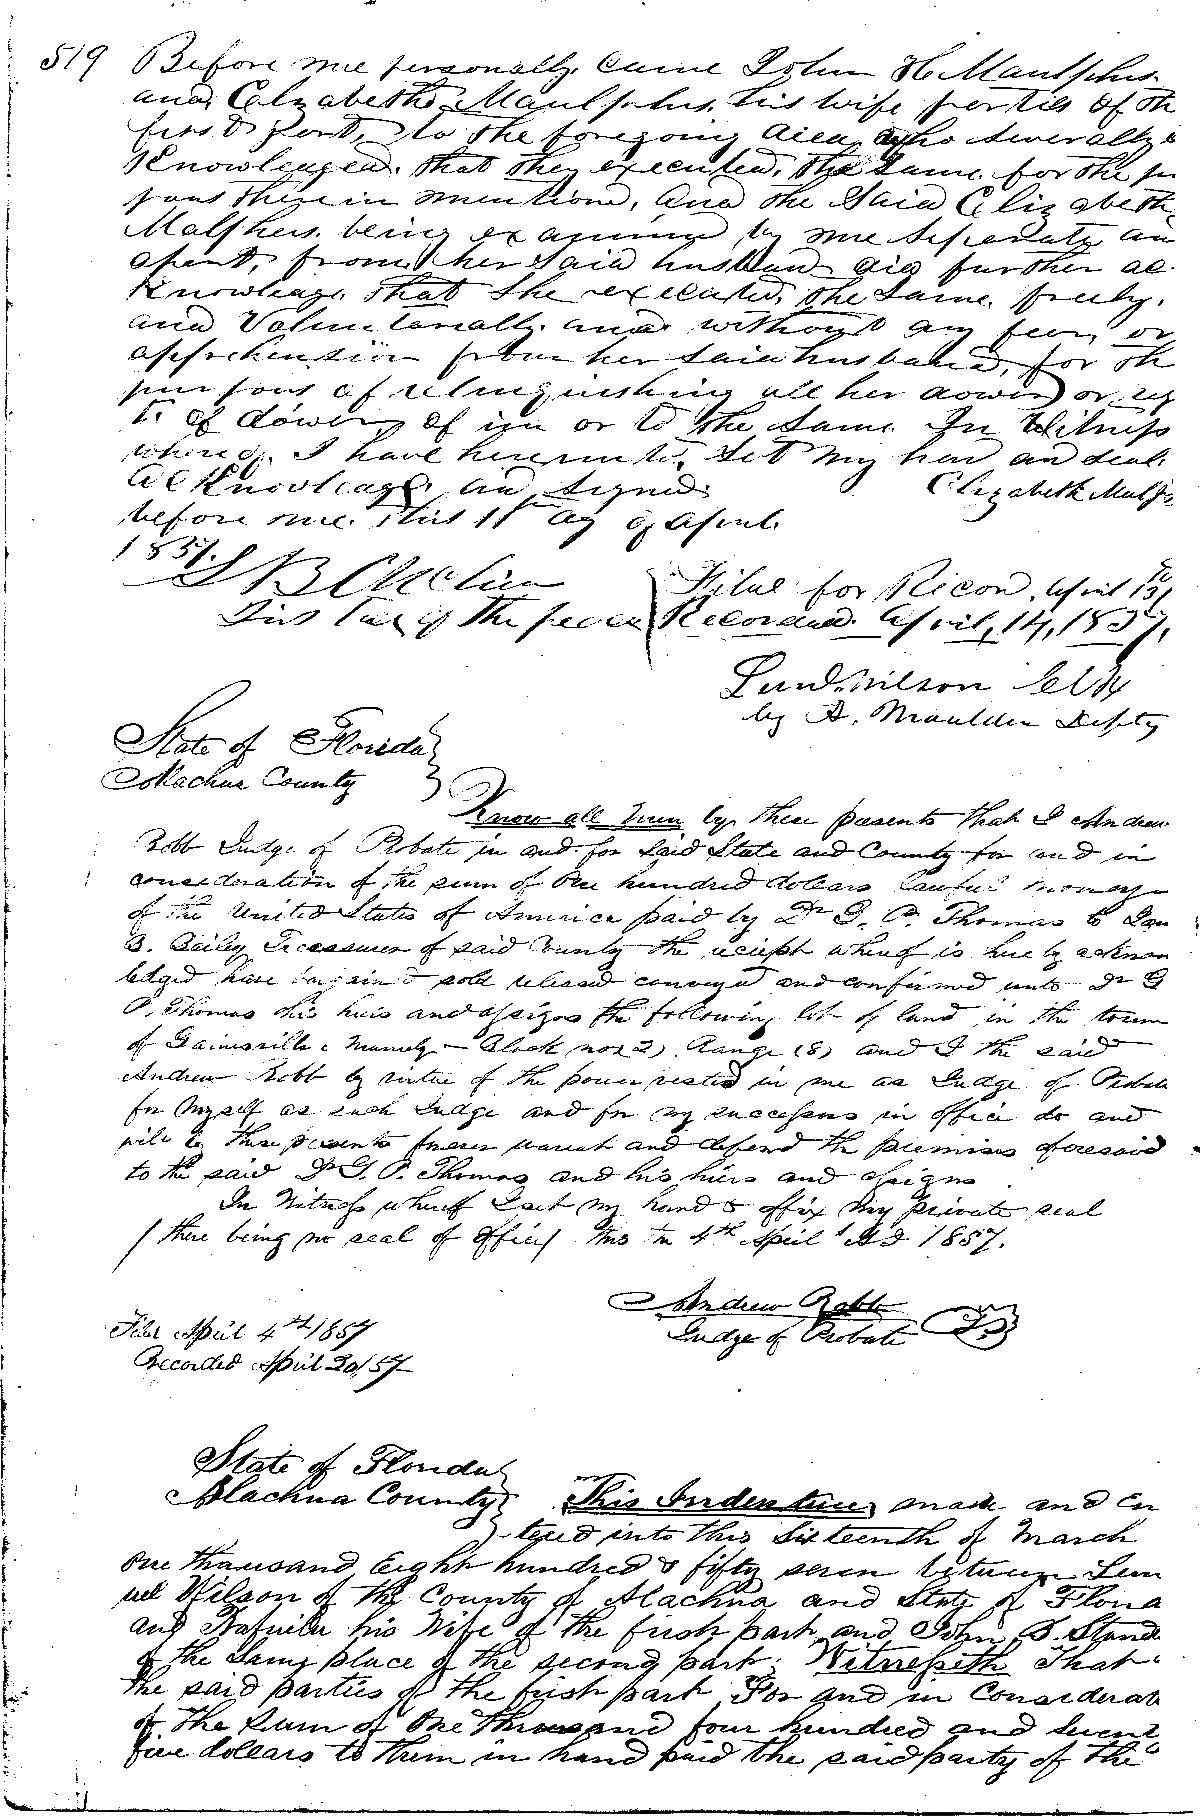 519
Before me personally came John H. Maulphus
and Elizabeth Maulphus, his wife parties of th
first part, to the foregoing deed, who severally a
Knowledged that they executed the same for the pu
pous therein mentiond, and the Said Elizabeth
Malphus being examined by me Seperate an
apart, from her Said husband did further ac
Knowledge that She executed the Same freely,
and Voluntarially and without any fear, or
apprehension from her said husband, for th
purpous of relinquishing all her dower or rig
t of dower of in or to the Same In Witness
whereof I have hereunto Set my han an Seal
acknowledge an Signed Elizabeth Malph
before me this 11th ay of April
1857.
Filed for Record April 13th
Recorded April, 14, 1857,
Lem. Wilson Clk
by A. Maulden Depty
State of Florida
Alachua County
Know all men by these presents that I Andrew
Robb Judge of Probate in and for Said State and County for and in
consideration of the sum of One hundred dollars lawful money
of the United States of America paid by Dr G. P. Thomas to
B. Bailey Treasurer of said County the reciept whereof is hereby acknow
ledged have bargained sold released conveyed and confirmed unto Dr G
P. Thomas his heirs and assigns the following lot of land in the town
of Gainesville: Namely - Block no 2) Range (8) and I the said
Andrew Robb by virtue of the power vested in me as Judge of Probate
for myself as such Judge and for my successors in office do and
will by these presents forever warrant and defend the premises aforesaid
to the said Dr G. P. Thomas and his hiers and assigns
In Witness whereof I set my hand & affix my private seal
(there being no seal of office) this the 4th April AD 1857.
Andrew Robb
Judge of Probate
Filed April 4th 1857
Recorded April 20/57
State of Florida
Alachua County
This Indenture made and En
tered into this Sixteenth of March
One thousand Eight hundred & fifty seven between Lem
uel Wilson of the County of Alachua and State of Florida
and his Wife of the first part and John B. Stand
of the Same place of the second part: Witnesseth That
the said parties of the first part For and in Considerat
of the Sum of One thousand four hundred and Seventy
five dollars to them in hand paid the said party of the